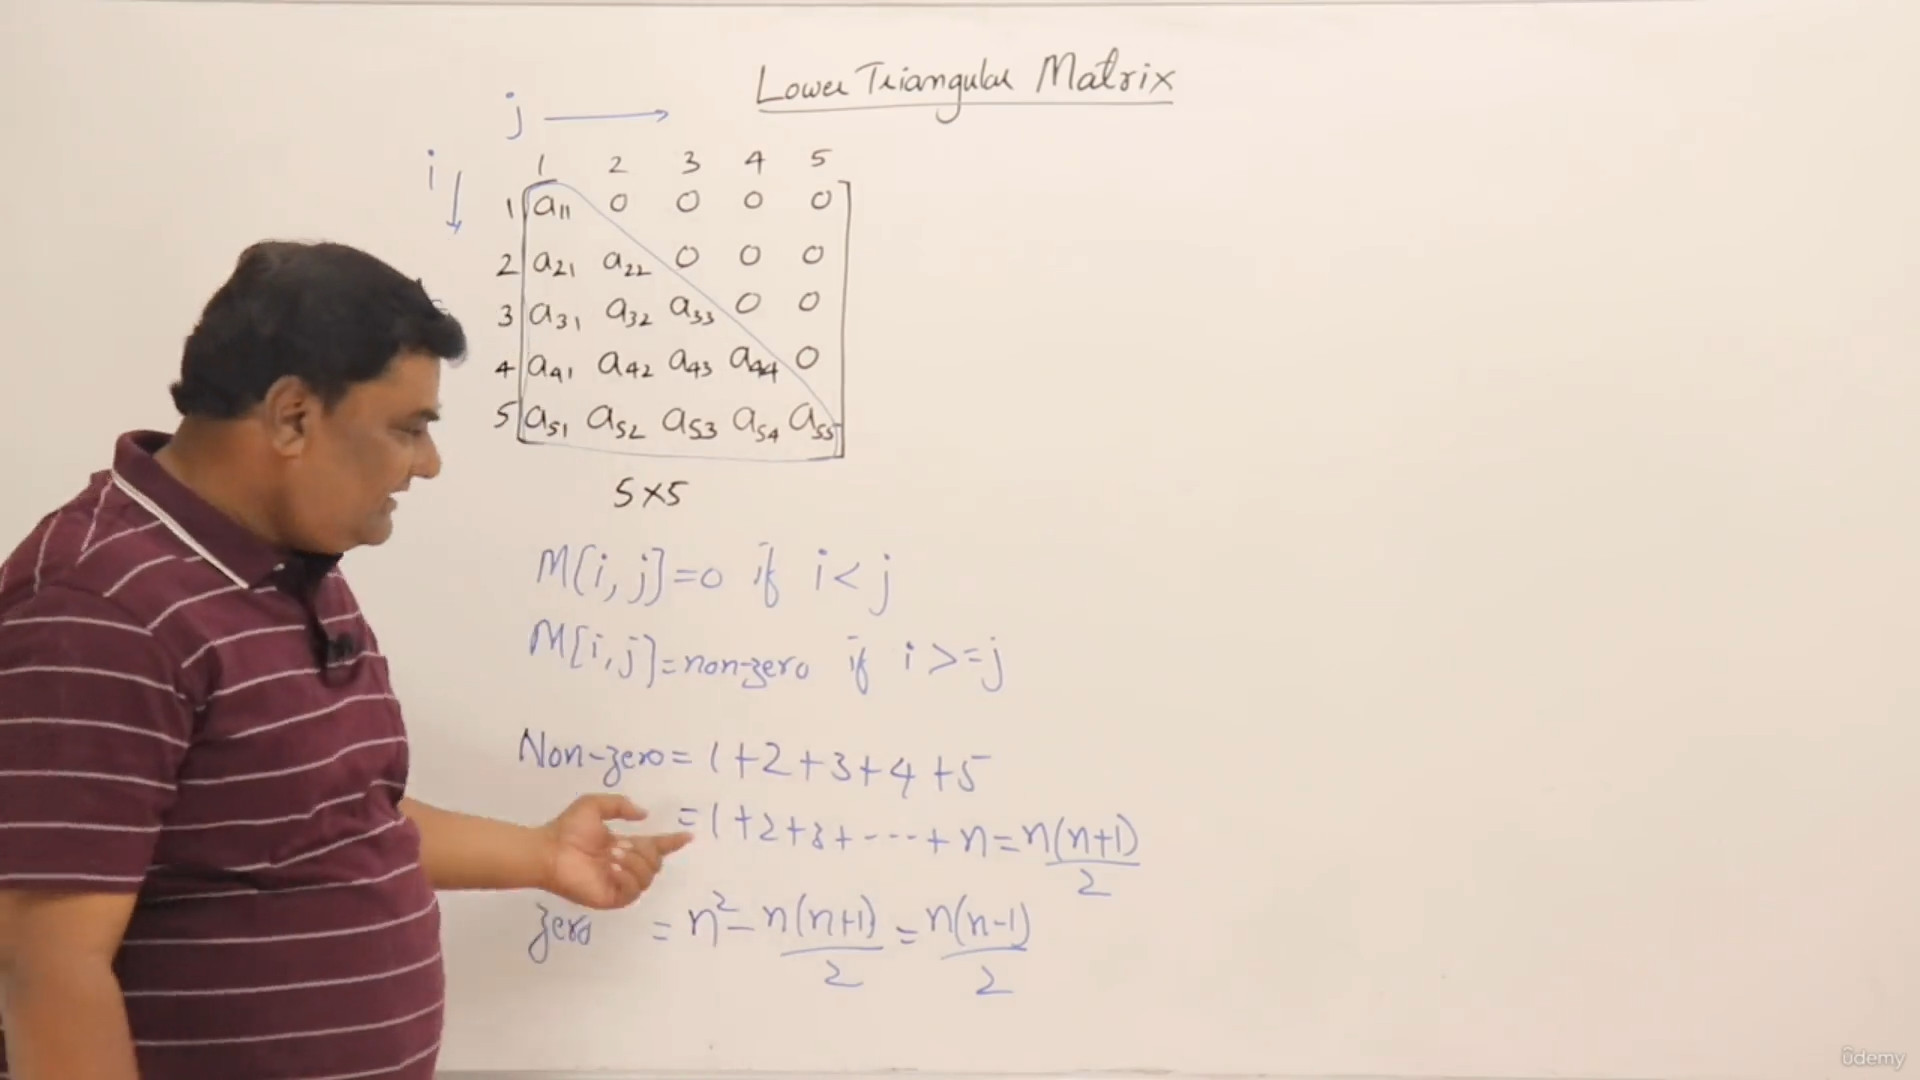 Lower Triangular Matrix
j
i
1 2 3 4 5
1 a11 0 0 0 0
2 a21 a22 0 0 0
3 a31 a32 a33 0 0
4 a41 a42 a43 a44 0
5 a51 a52 a53 a54 a55
5x5
M[i, j]=0 if i< j
M[i,j]=non-zero if i >=j
Non-zero= 1+2+3+4+5
=1+2+3+---+n=n(n+1)/2
zero = n²-n(n+1)/2=n(n-1)/2
ûdemy